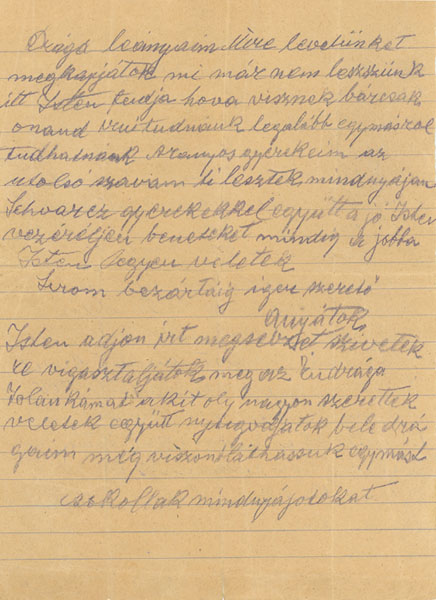 Drága leányaim Mire levelünket
megkapjátok mi már nem leszszünk
itt Isten tudja hova visznek bárcsak
onand irni tudnánk legalább egymásrol
tudhatnánk Aranyos gyerekeim az
utolsó szavam ti lesztek mindnyájan
Schvarcz gyerekekkel együtt a jó Isten
vezéreljen beneteket mindig a jobba
Isten legyen veletek
Sirom bezártáig igen szerető
Anyátok
Isten adjon irt megsebzet szivetek
re vigasztaljátok meg az Éndrága
Jolánkámat akit oly nagyon szerettek
veletek együtt nyugodjatok bele drá
gáim még viszonóláthassuk egymást
csokollak mindnyájotokat